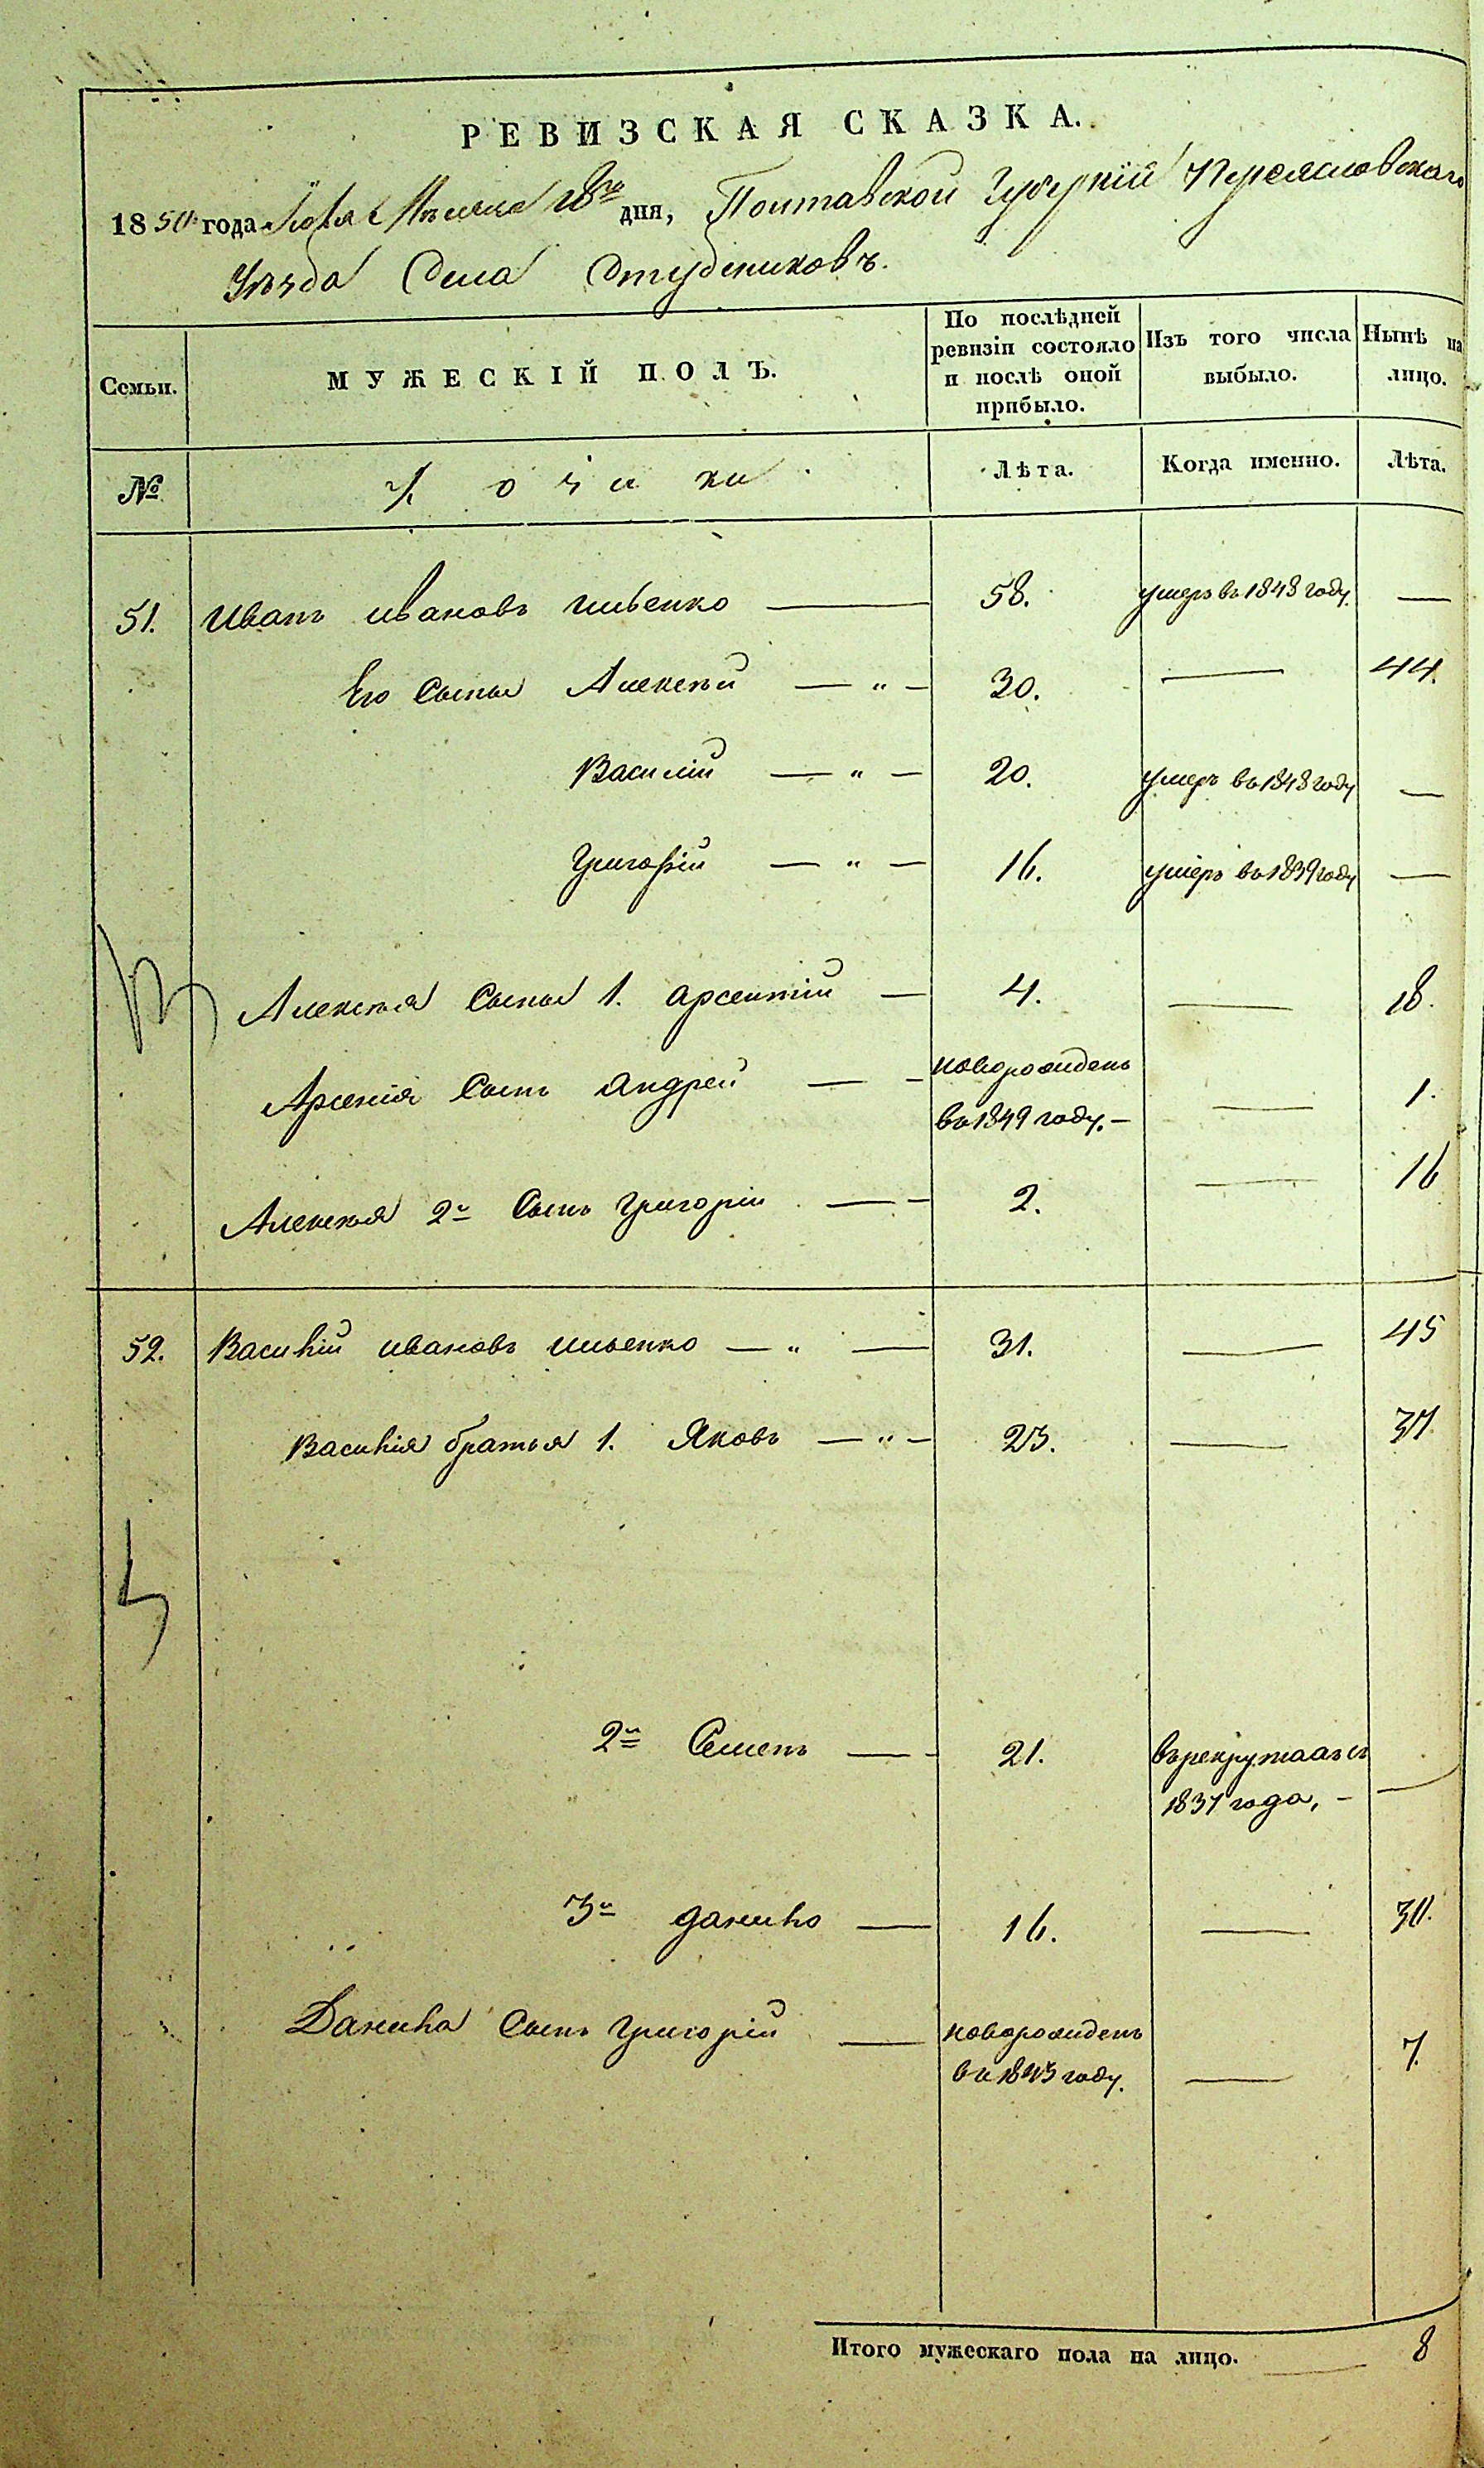 РЕВИЗСКАЯ СКАЗКА.
1850 года Мѣсяца 18го дня, Полтавской Губерніи Переясловскаго
Уѣзда Села Студениковъ.
Семьи.
МУЖЕСКІЙ ПОЛЪ.
По послѣдней ревизіи состояло и послѣ оной прибыло.
Изъ того числа выбыло.
Нынѣ на лицо.
№
Лѣта.
Когда именно.
Лѣта.
51. Иванъ Ивановъ Ильенко — 58. умеръ въ 1848 году. —
Его Сынья Алексѣй — „ — 30. — 44.
Василій — „ — 20. умеръ въ 1848 году —
Григорій — „ — 16. умеръ въ 1839 году —
Алексѣя Сынья 1. Арсентій — 4. — 18.
Арсенія Сынъ Андрей — новорожденъ
въ 1849 году. — — 1.
Алексѣя 2й Сынъ Григорій — 2. — 16
52. Василій Ивановъ Ильенко — „ — 31. — 45
Василія братья 1. Яковъ — „ — 23. — 37
2й Семенъ — 21. въ рекрутахъ съ
1837 года, — —
3й Данило — 16. — 30.
Данила Сынъ Григорій — новорожденъ
въ 1843 году. — 7.
Итого мужескаго пола на лицо. — 8